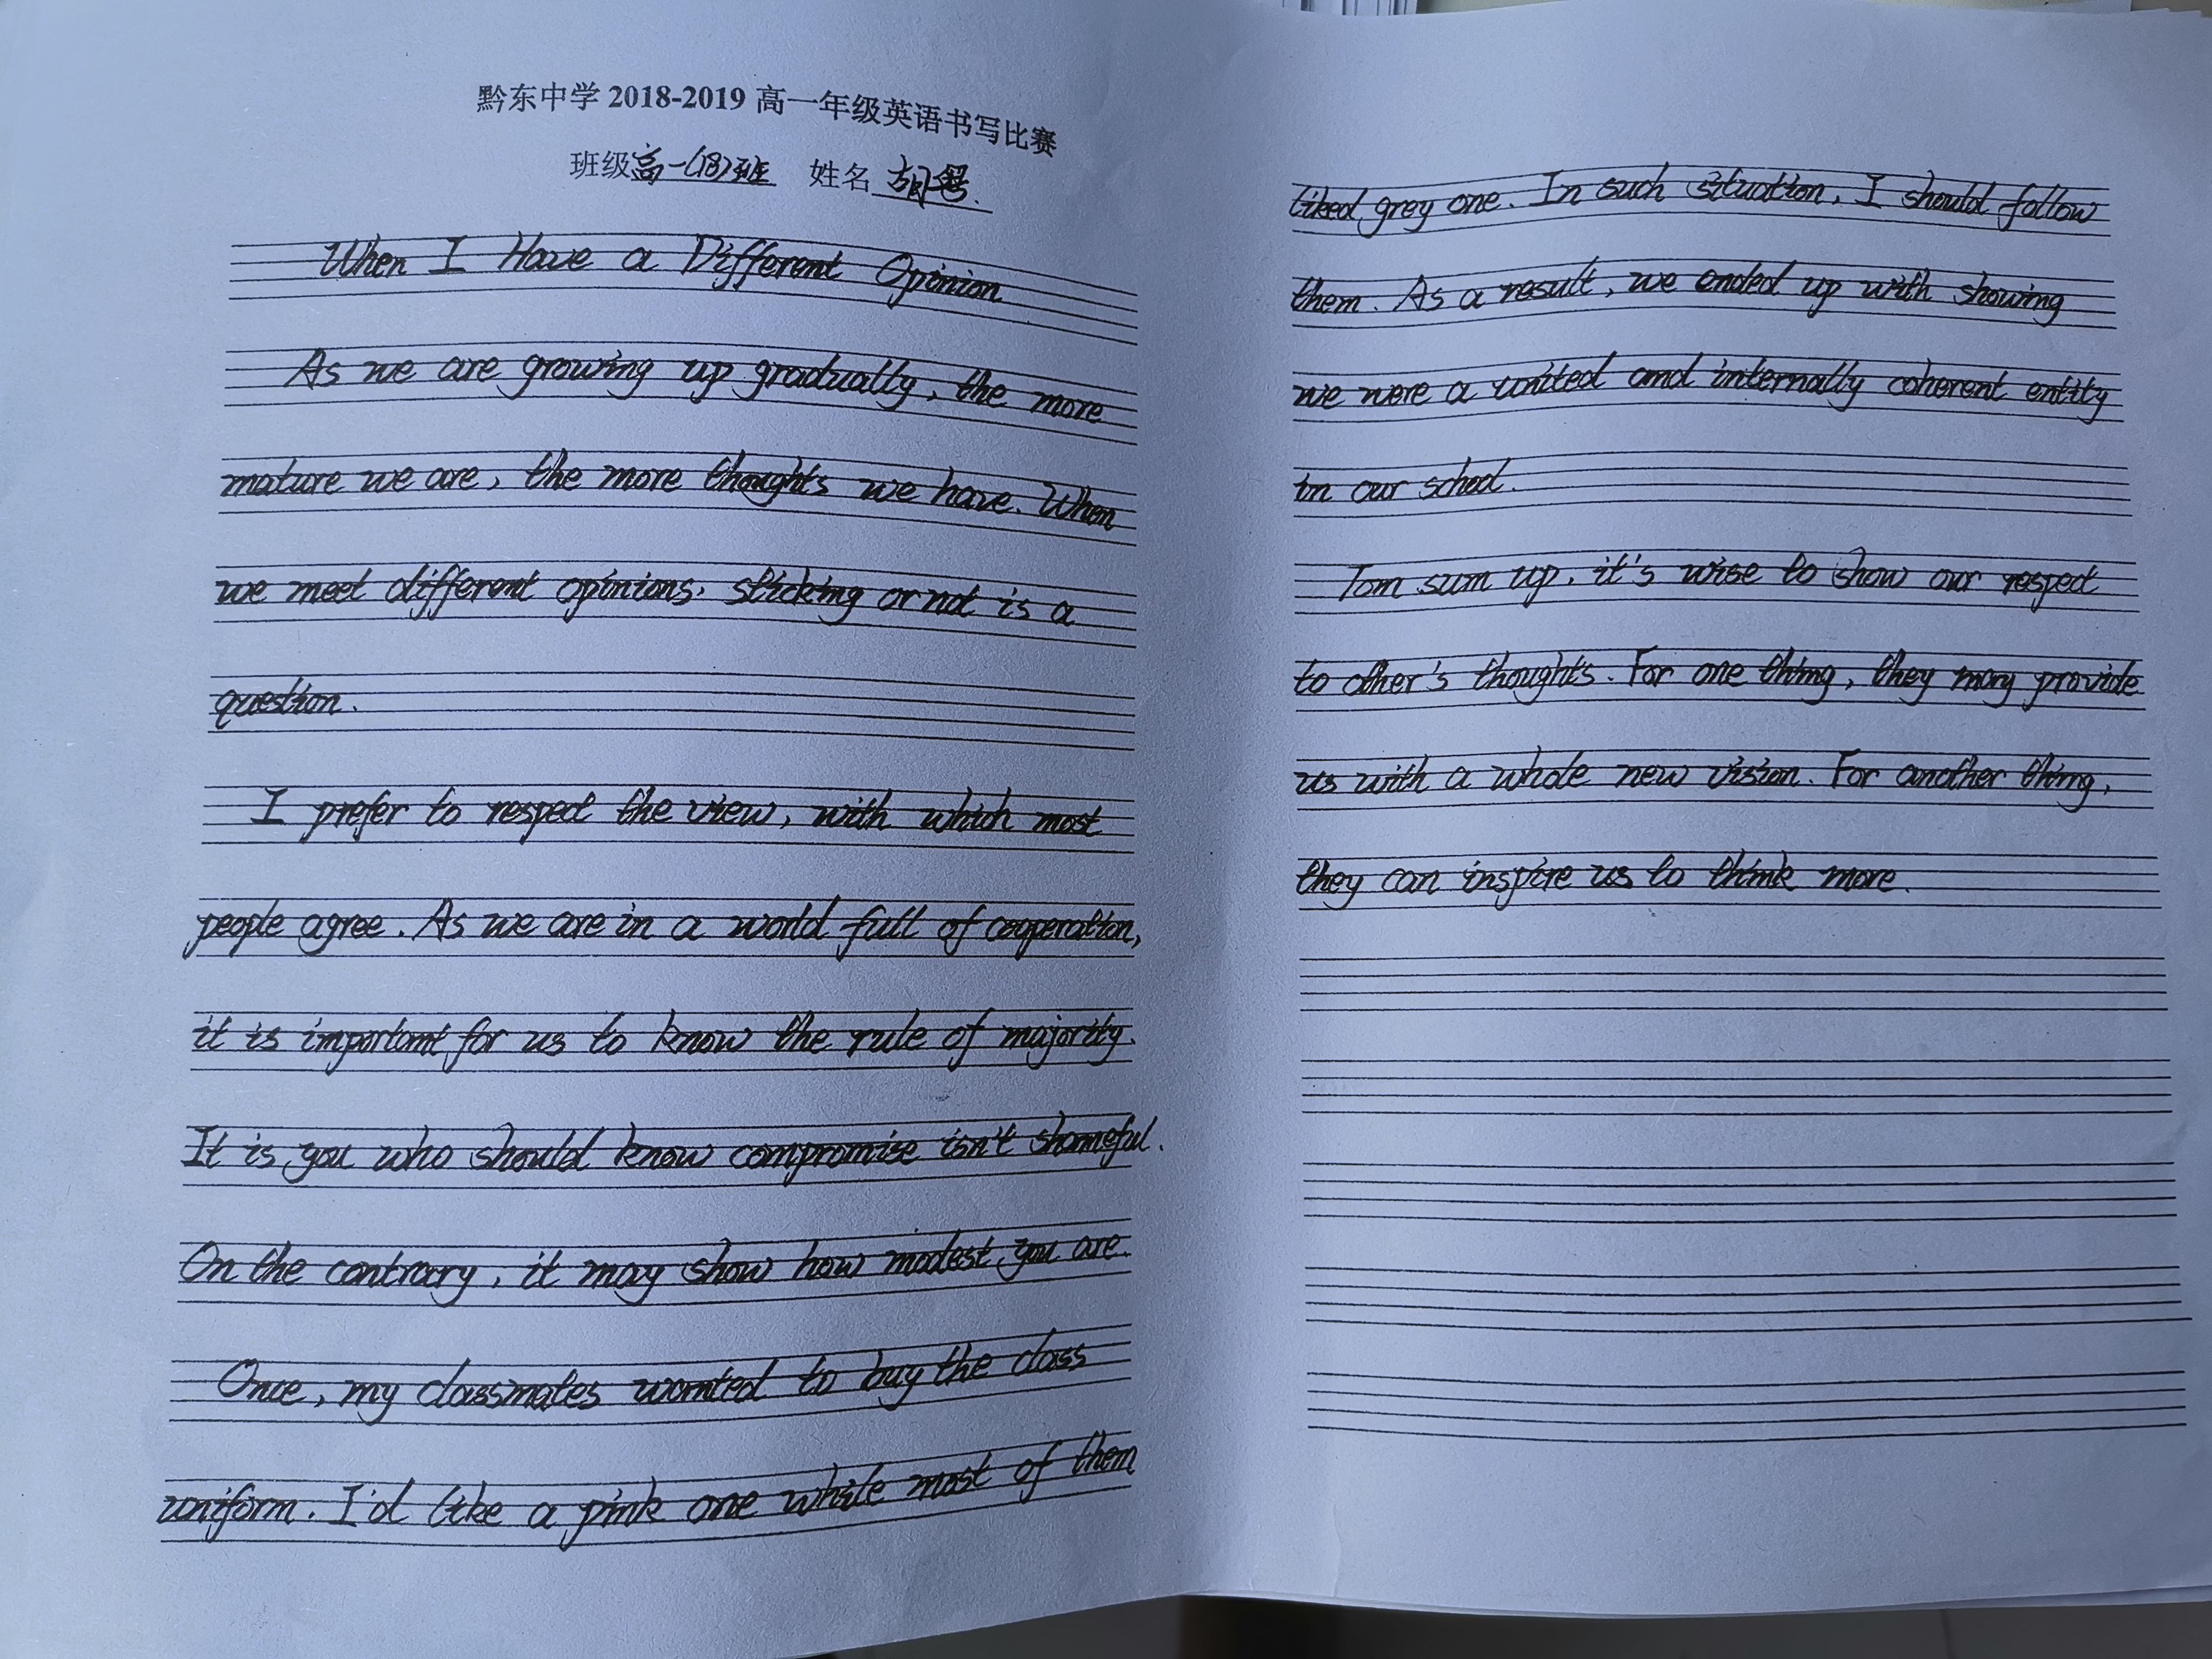 黔东中学 2018-2019 高一年级英语书写比赛
班级 高一(18)班 姓名 胡
When I Have a Different Opinion
As we are growing up gradually, the more
mature we are, the more thoughts we have. When
we meet different opinions, sticking or not is a
question.
I prefer to respect the view, with which most
people agree. As we are in a world full of cooperation,
it is important for us to know the rule of majority.
It is you who should know compromise isn't shameful.
On the contrary, it may show how modest you are.
Once, my classmates wanted to buy the class
uniform. I'd like a pink one while most of them
liked grey one. In such situation, I should follow
them. As a result, we ended up with showing
we were a united and internally coherent entity
in our school.
Tom sum up, it's wise to show our respect
to other's thoughts. For one thing, they may provide
us with a whole new vision. For another thing,
they can inspire us to think more.